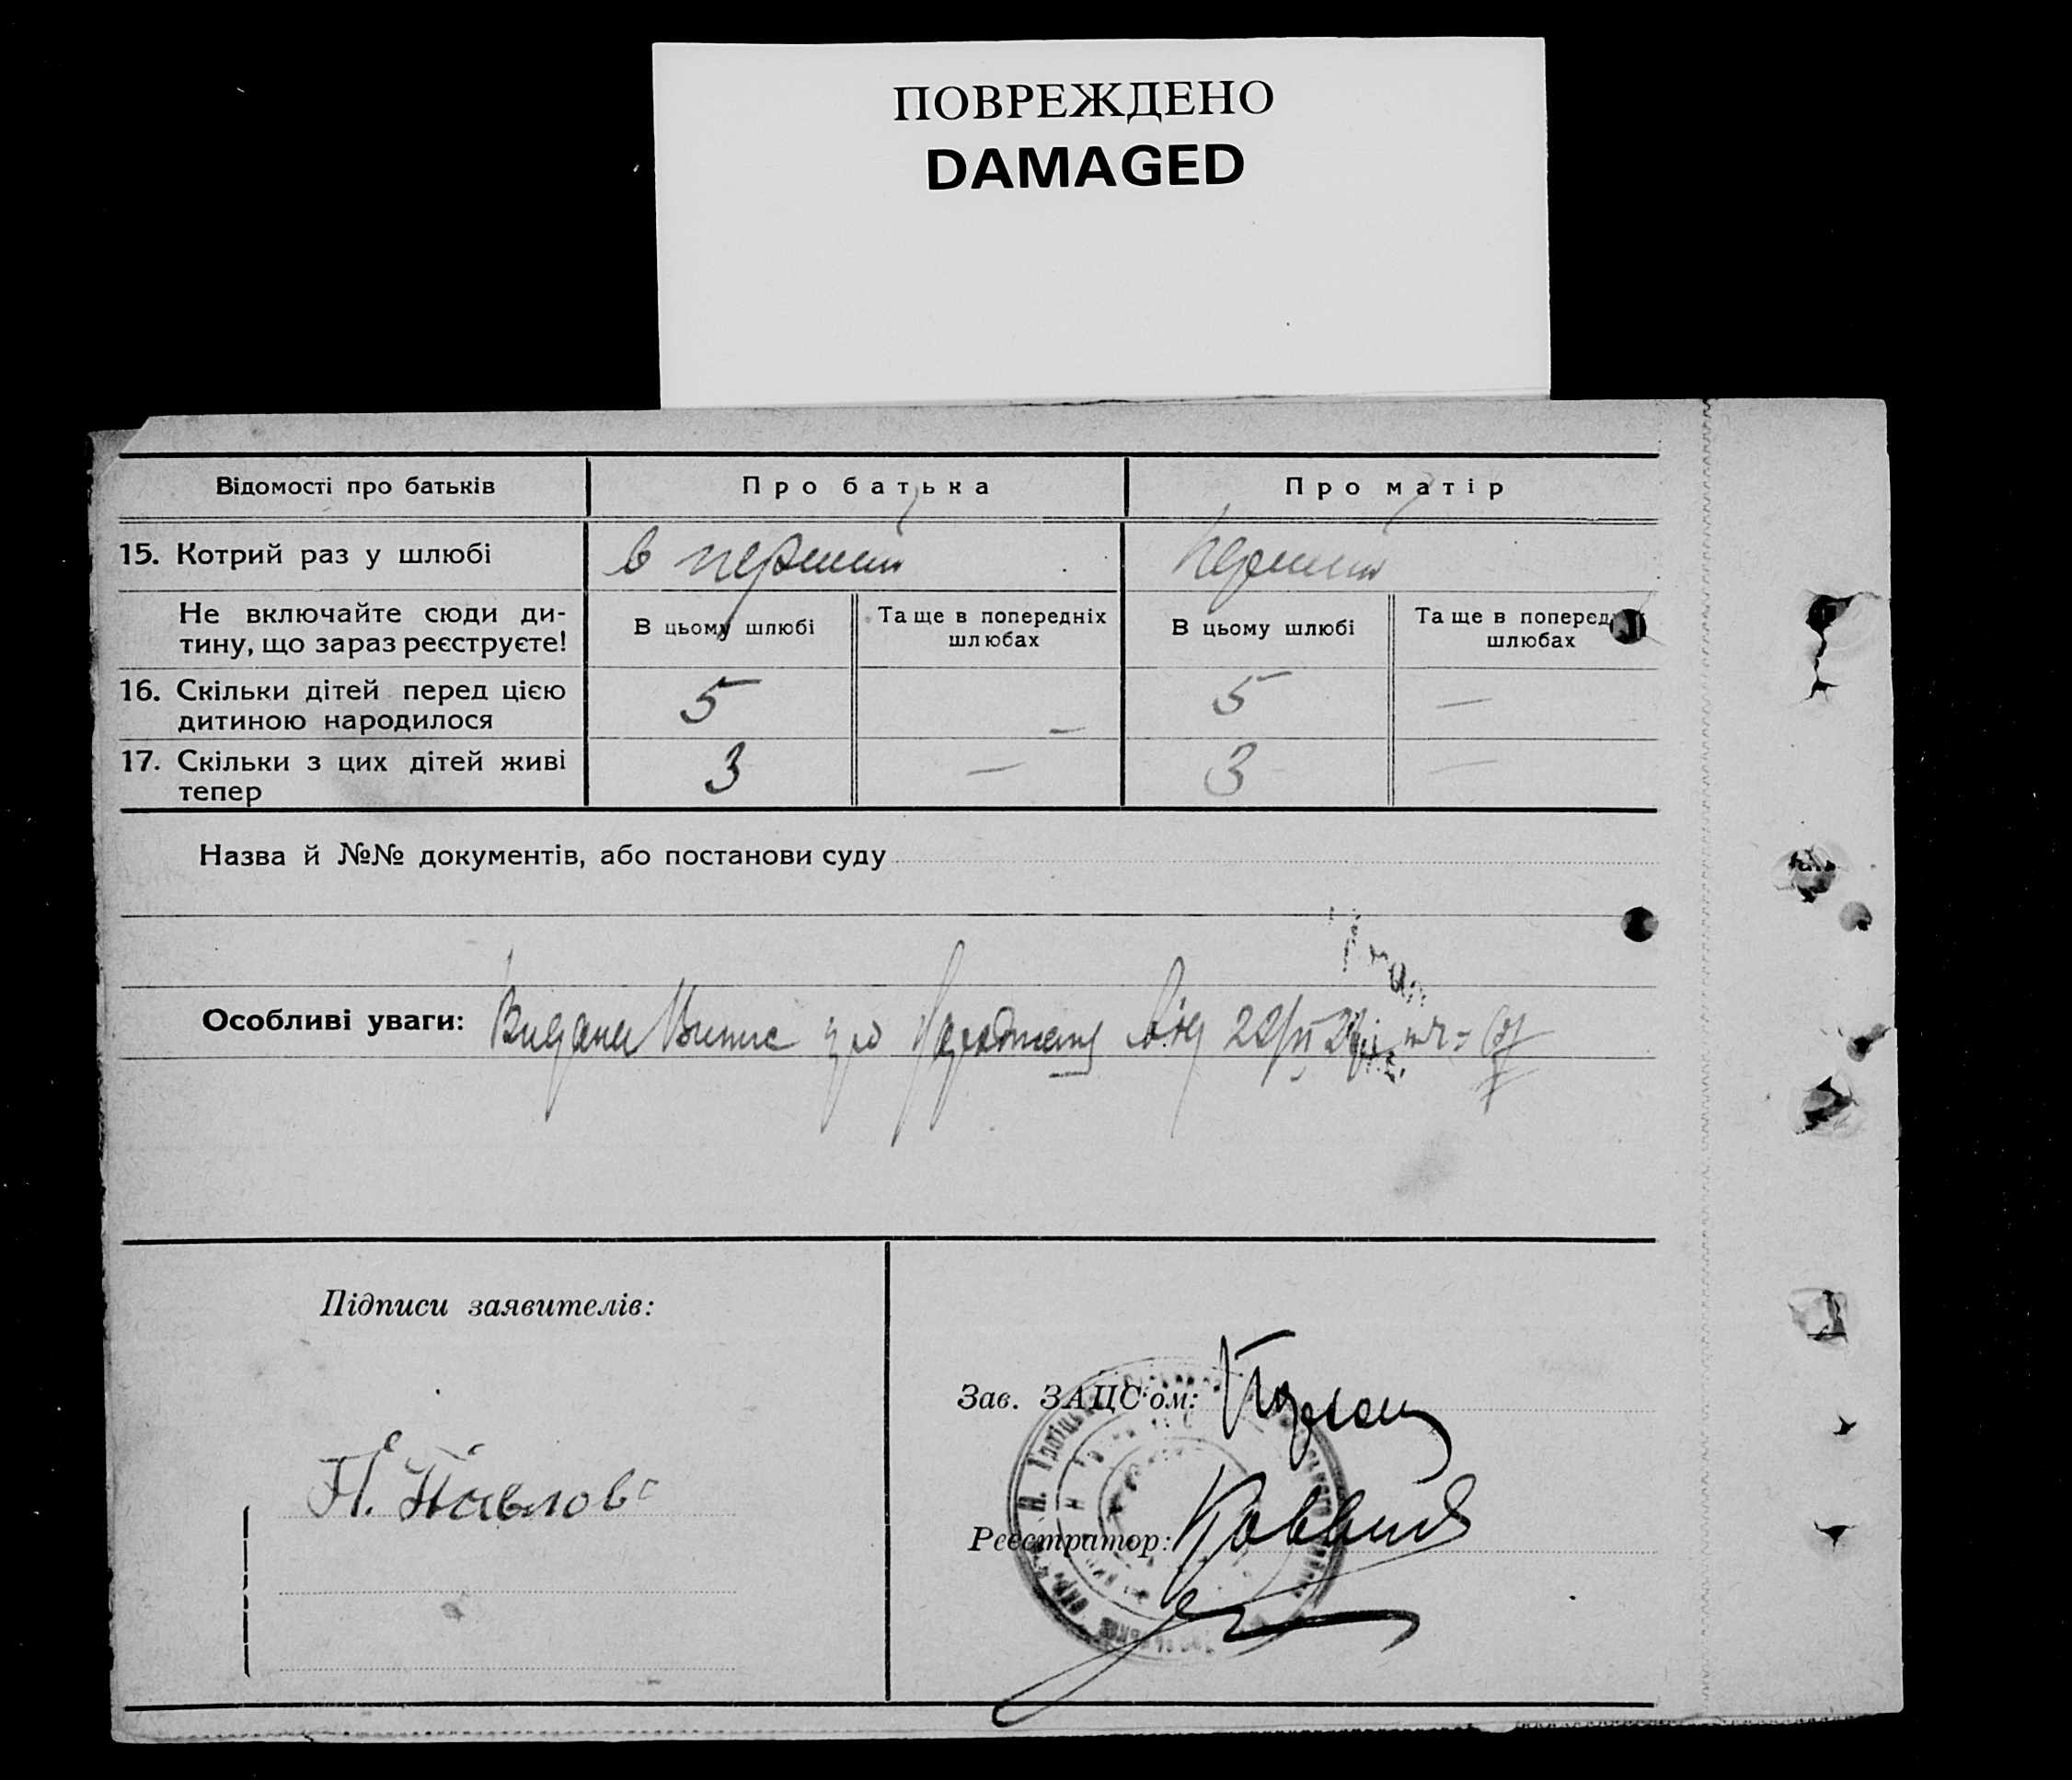 ПОВРЕЖДЕНО
DAMAGED
Відомості про батьків
Про батька
Про матір
15. Котрий раз у шлюбі
в перший
перший
Не включайте сюди ди-
тину, що зараз реєструєте!
В цьому шлюбі
Та ще в попередніх
шлюбах
В цьому шлюбі
Та ще в поперед
шлюбах
16. Скільки дітей перед цією
дитиною народилося
5
—
5
—
17. Скільки з цих дітей живі
тепер
3
—
3
—
Назва й №№ документів, або постанови суду
Особливі уваги: Видана Випис про від 22/II
Підписи заявителів:
Зав. ЗАЦС'ом:
П. Павлов
Реєстратор: